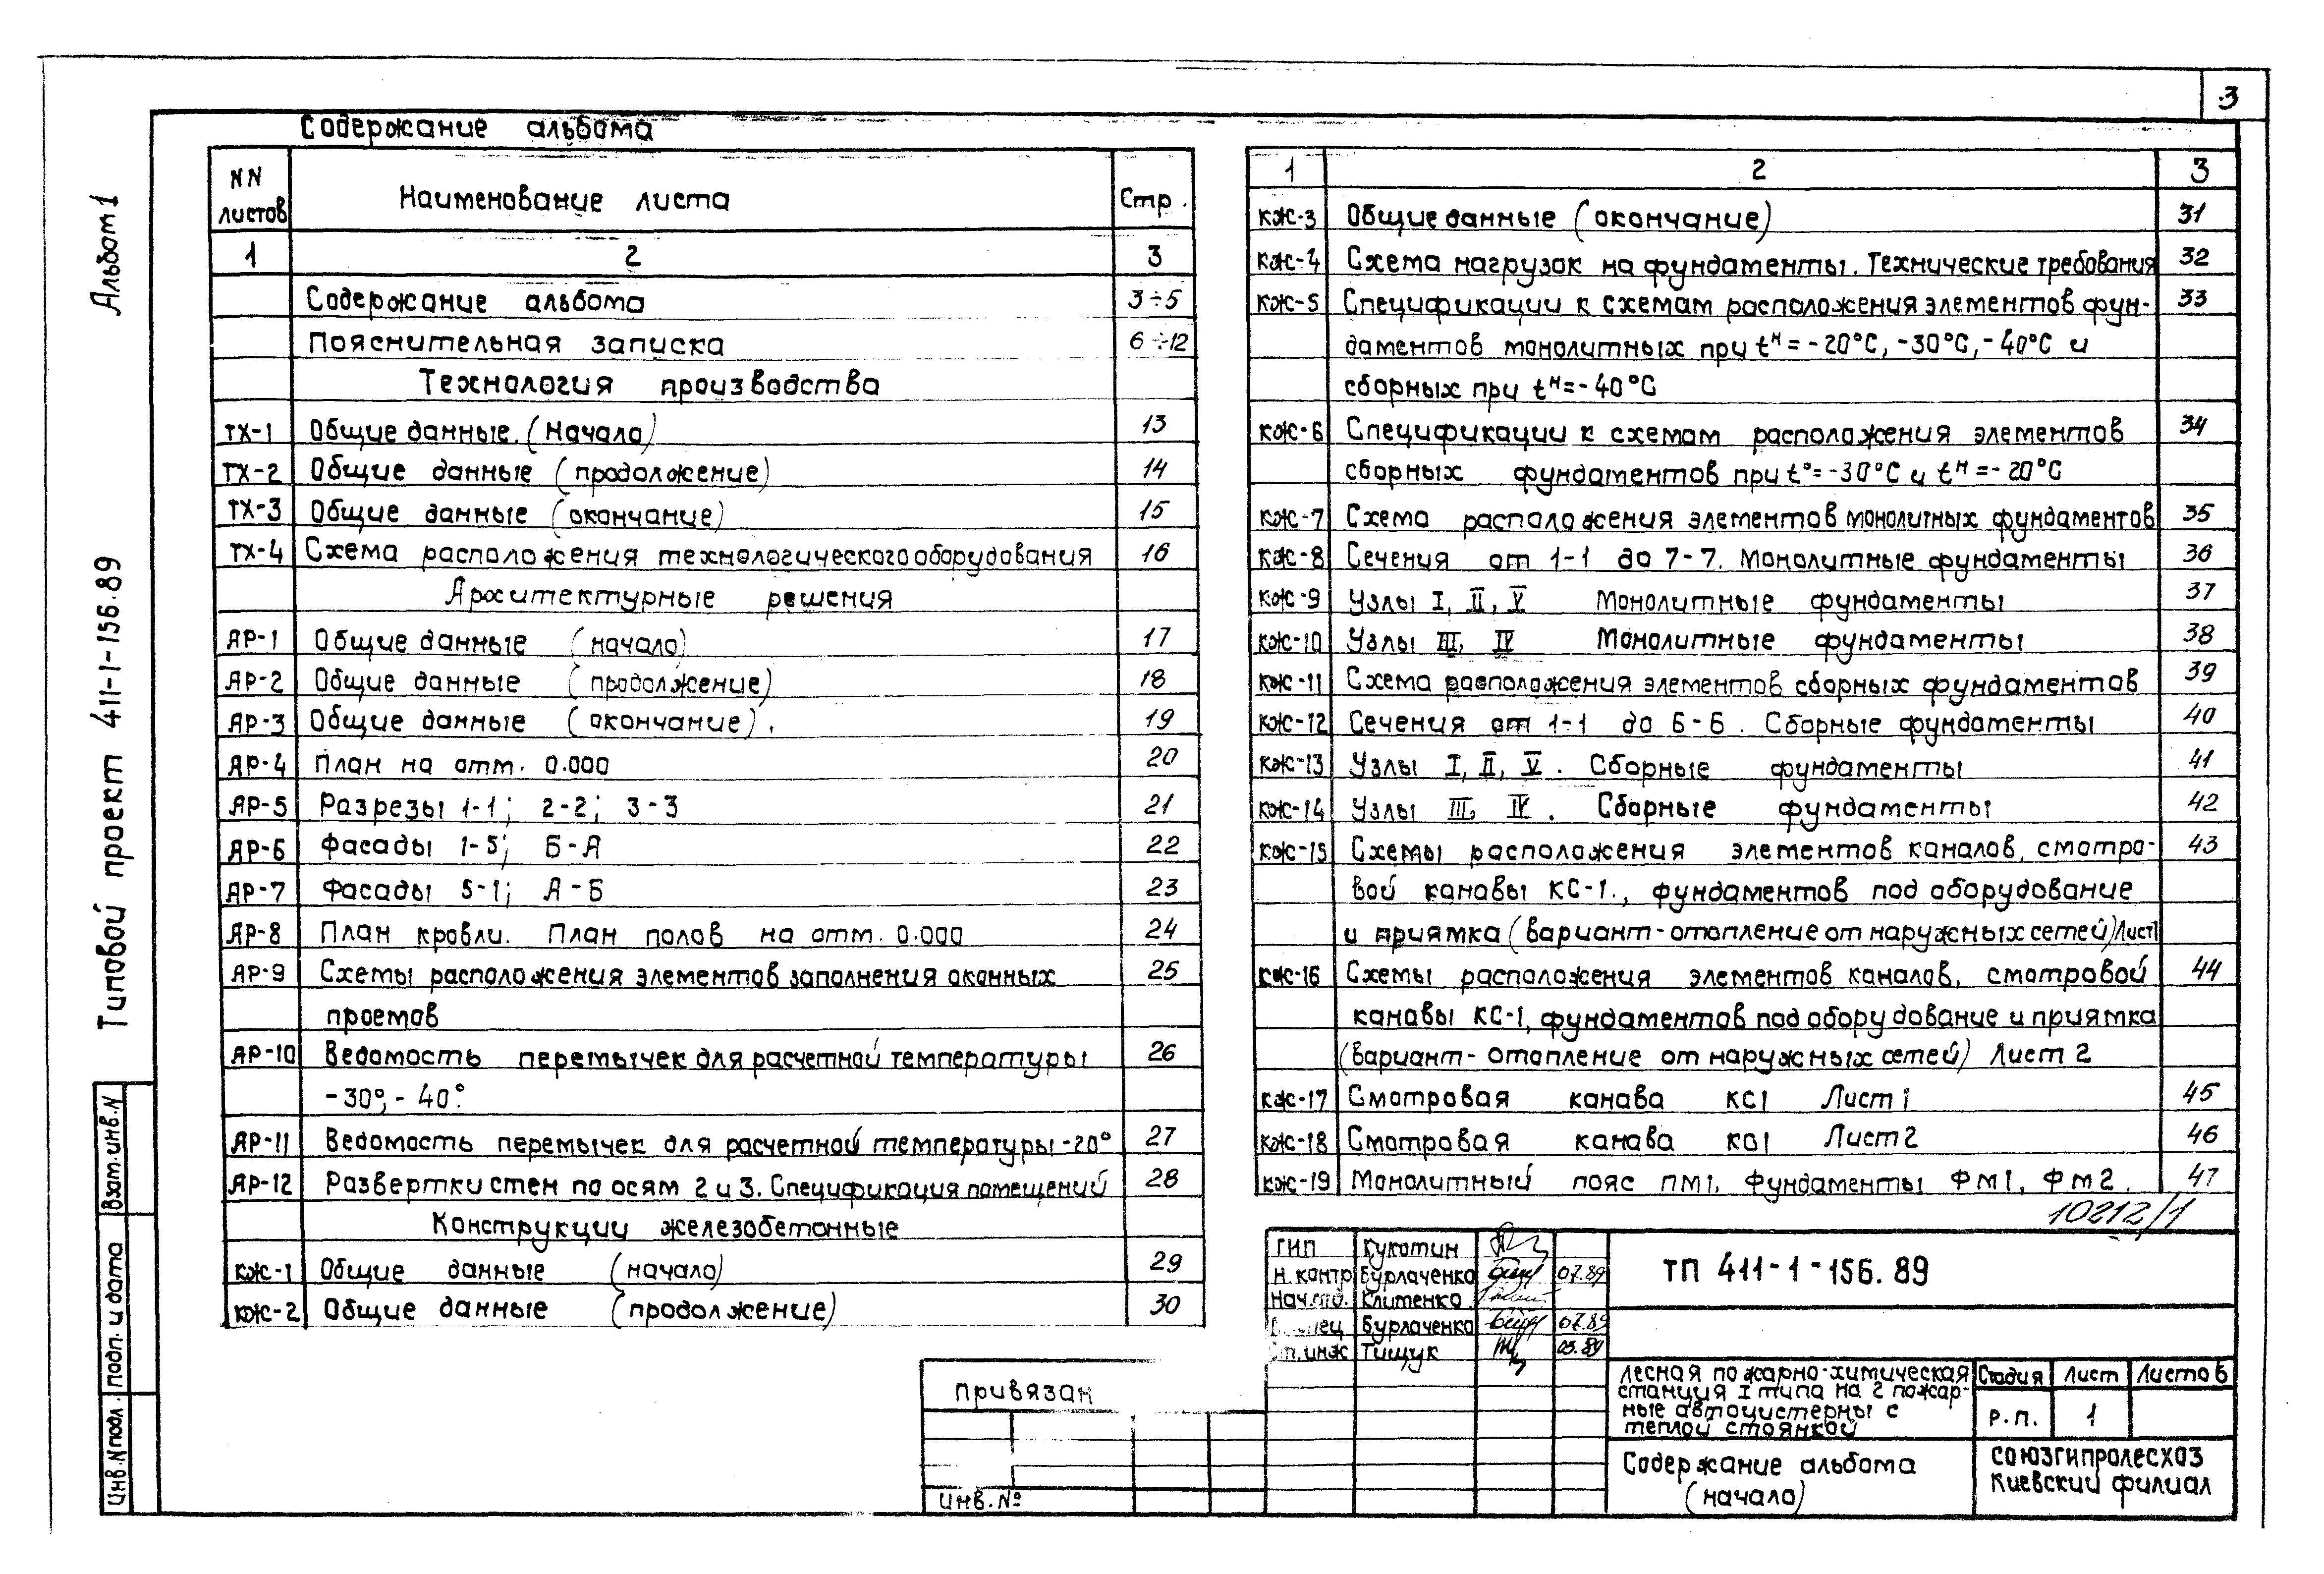 3
Содержание альбома
NN листов Наименование листа Стр.
1 2 3
Содержание альбома 3÷5
Пояснительная записка 6÷12
Технология производства
ТХ-1 Общие данные. (Начало) 13
ТХ-2 Общие данные (продолжение) 14
ТХ-3 Общие данные (окончание) 15
ТХ-4 Схема расположения технологического оборудования 16
Архитектурные решения
АР-1 Общие данные (начало) 17
АР-2 Общие данные (продолжение) 18
АР-3 Общие данные (окончание). 19
АР-4 План на отм. 0.000 20
АР-5 Разрезы 1-1; 2-2; 3-3 21
АР-6 Фасады 1-5; Б-А 22
АР-7 Фасады 5-1; А-Б 23
АР-8 План кровли. План полов на отм. 0.000 24
АР-9 Схемы расположения элементов заполнения оконных 25
проемов
АР-10 Ведомость перемычек для расчетной температуры 26
-30°, -40°.
АР-11 Ведомость перемычек для расчетной температуры -20° 27
АР-12 Развертки стен по осям 2 и 3. Спецификация помещений 28
Конструкции железобетонные
КЖ-1 Общие данные (начало) 29
КЖ-2 Общие данные (продолжение) 30
1 2 3
КЖ-3 Общие данные (окончание) 31
КЖ-4 Схема нагрузок на фундаменты. Технические требования 32
КЖ-5 Спецификации к схемам расположения элементов фун- 33
даментов монолитных при tн = -20°С, -30°С, -40°С и
сборных при tн = -40°С
КЖ-6 Спецификации к схемам расположения элементов 34
сборных фундаментов при t° = -30°С и tн = -20°С
КЖ-7 Схема расположения элементов монолитных фундаментов 35
КЖ-8 Сечения от 1-1 до 7-7. Монолитные фундаменты 36
КЖ-9 Узлы I, II, V Монолитные фундаменты 37
КЖ-10 Узлы III, IV Монолитные фундаменты 38
КЖ-11 Схема расположения элементов сборных фундаментов 39
КЖ-12 Сечения от 1-1 до 6-6. Сборные фундаменты 40
КЖ-13 Узлы I, II, V. Сборные фундаменты 41
КЖ-14 Узлы III, IV. Сборные фундаменты 42
КЖ-15 Схемы расположения элементов каналов, смотро- 43
вой канавы КС-1., фундаментов под оборудование
и приямка (вариант-отопление от наружных сетей) Лист 1
КЖ-16 Схемы расположения элементов каналов, смотровой 44
канавы КС-1, фундаментов под оборудование и приямка
(вариант- отопление от наружных сетей) Лист 2
КЖ-17 Смотровая канава КС1 Лист 1 45
КЖ-18 Смотровая канава КС1 Лист 2 46
КЖ-19 Монолитный пояс ПМ1. Фундаменты ФМ1, ФМ2. 47
10212/1
Альбом 1
Типовой проект 411-1-156.89
Взам.инв.N
Подп. и дата
Инв.Nподл.
Привязан
Инв.№
ГИП Кукотин
Н.контр Бурлаченко 07.89
Нач.отд. Клименко
Бурлаченко 07.89
Ст.инж Тищук 03.89
ТП 411-1-156.89
Лесная пожарно-химическая
станция I типа на 2 пожар-
ные автоцистерны с
теплой стоянкой
Стадия Лист Листов
Р.П. 1
Содержание альбома
(начало)
СОЮЗГИПРОЛЕСХОЗ
Киевский филиал